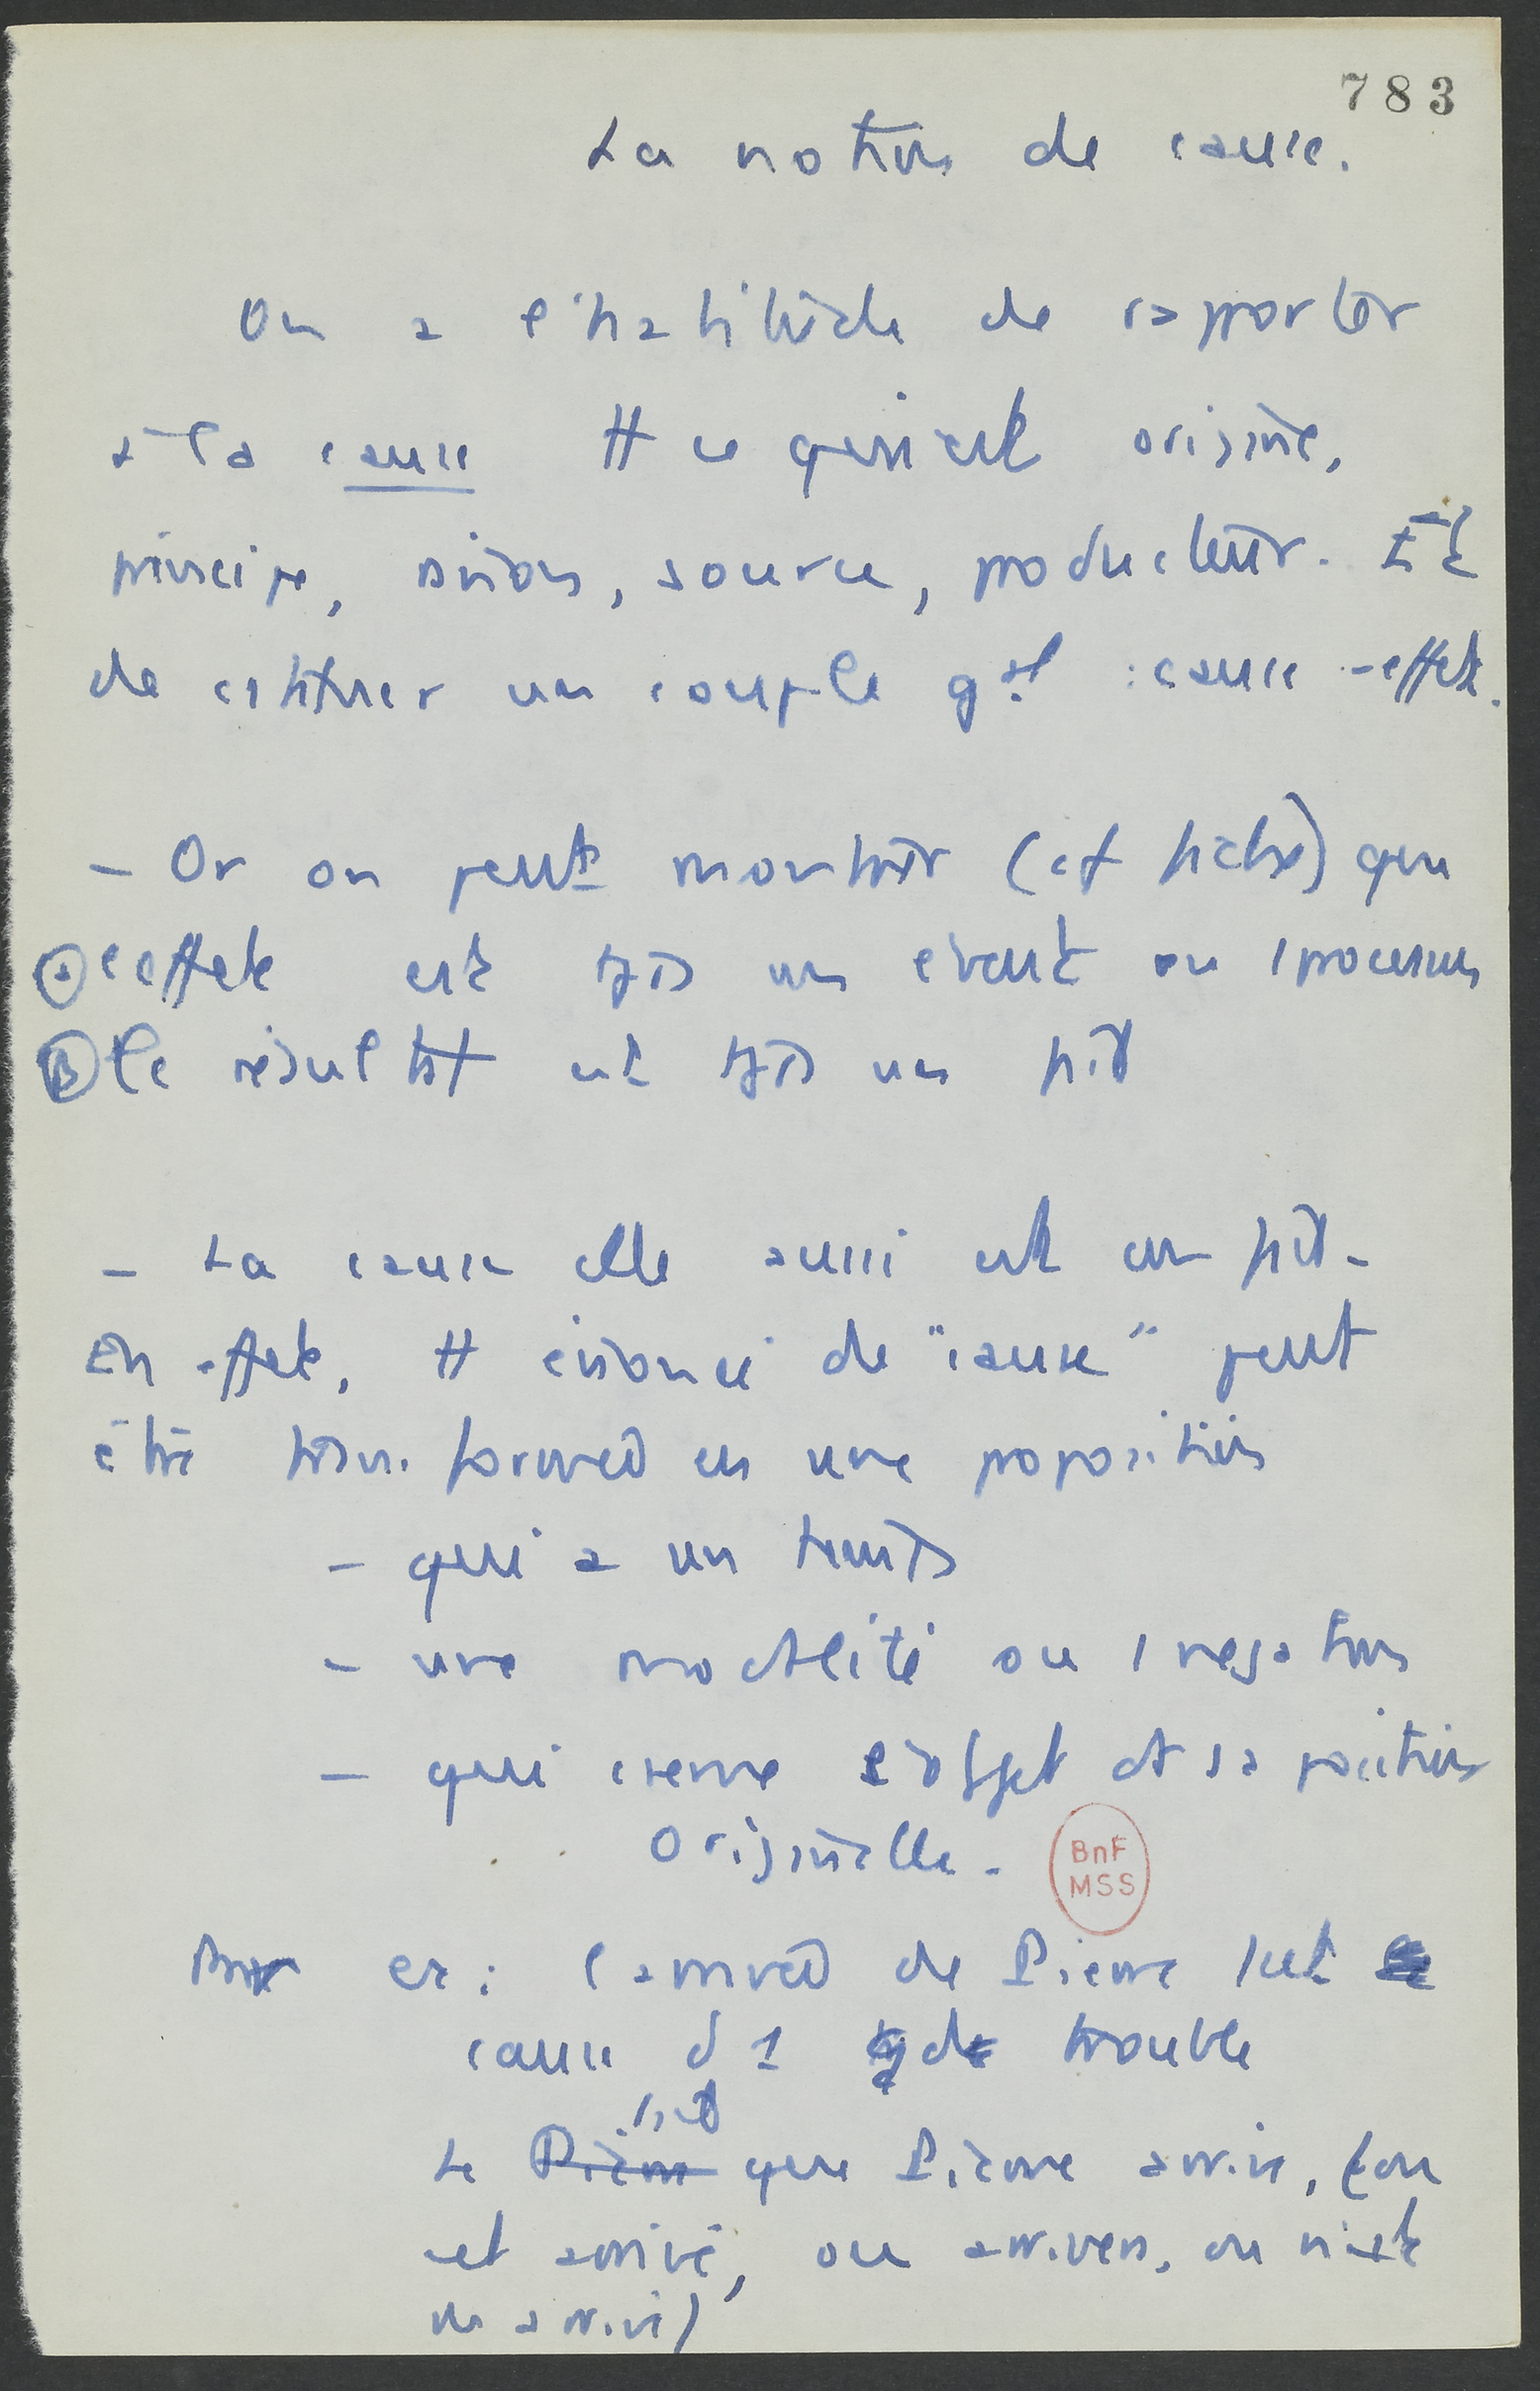 783
La notion de cause.
On a l'habitude de rapporter
à la cause tt ce qui est origine,
principe, raison, source, producteur. Et
de constituer un couple gal : cause - effet.
- Or on peut montrer (cf fiche) que
(a) l'effet est tjs un évent ou 1 processus
(B) le résultat est tjs un fait
- La cause elle aussi est un fait.
En effet, tt énoncé de "cause" peut
être transformée en une proposition
- qui a un temps
- une modalité ou 1 négation
- qui l'objet et sa position
originelle.
BnF
MSS
Par ex : l'arrivée de Pierre est
cause d'1 gd trouble
fait
Le Pierre que Pierre arrive, (ou
est arrivé, ou arrivera, ou n'est
pas arrivé)